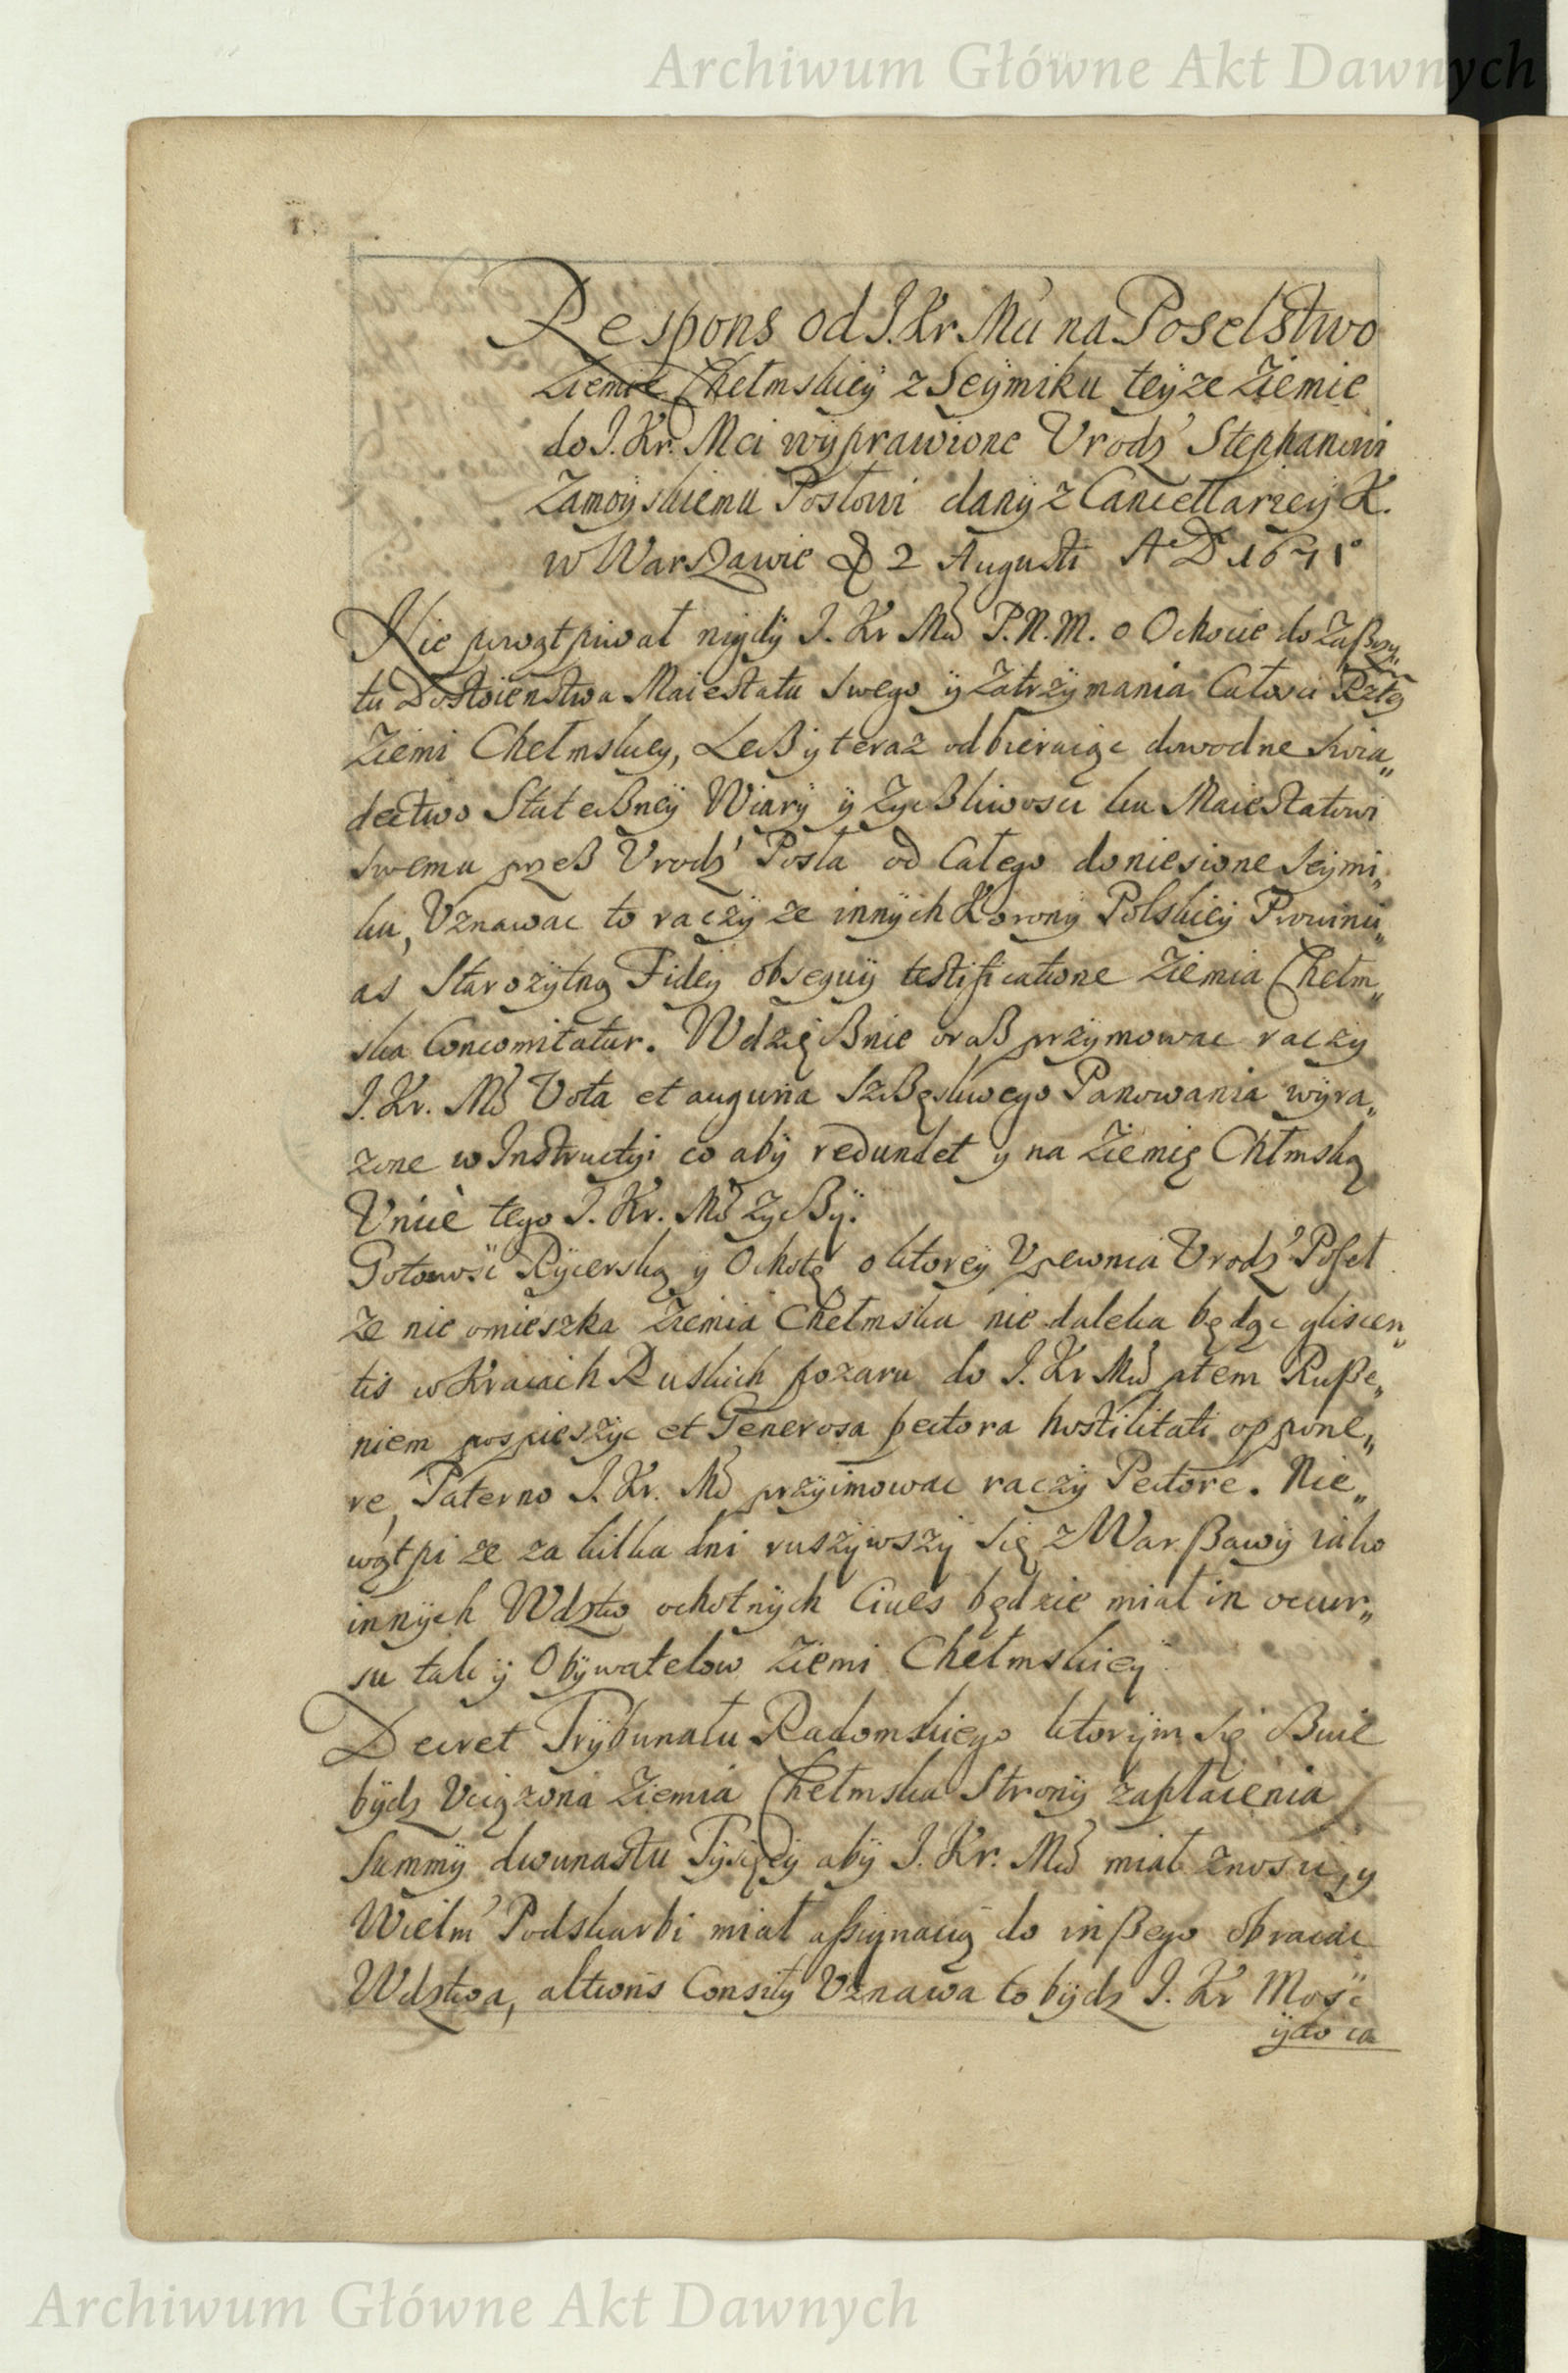 Archiwum Główne Akt Dawnych
Respons od J. Kr. Mci na Poselstwo
Ziemie Chełmskiey z Seymiku teyze Ziemie
do J. Kr. Mci wyprawione Vrodz Stephanowi
Zamoyskiemu Posłowi dany z Cancellarzey K.
w Warszawie D 2 Augusti A D 1671
Nie powątpiwał nigdy J. Kr Mć P. N. M. o Ochocie do Zaßczy„
tu Dostoienstwa Maiestatu Swego y Zatrzymania Całosci Rzltey
Ziemi Chełmskiey, Leßy teraz odbieraiąc dowodne Swia„
dectwo Statecßney Wiary y Zycßliwosci ku Maiestatowi
Swemu przeß Vrodz Posła od Całego doniesione Seymi„
ku, Vznawac to raczy ze innych Korony Polskiey Prowinci„
as Starozytną Fidey obsequij testificatione Ziemia Chełm„
ska Concomitatur. Wdzięßnie oraß przymowac raczy
J. Kr. Mć Vota et auguria Szcßęsliwego Panowania wyra„
zone w Instructyi co aby redundet y na Ziemię Chłmską
Vnicè tego J. Kr. Mć Zycßy.
Gotowość Rycerską y Ochotę o ktorey Vpewnia Vrodz Poseł
ze nie omieszka Ziemia Chełmska nie daleka będąc gliscen„
tis w Kraiach Ruskich pozaru do J. Kr Mći płem Rusße„
niem pospieszyc et Generosa pectora hostilitati oppone„
re, Paterno J. Kr. Mć przyimowac raczy Pectore. Nie„
wątpi ze za kilka dni ruszywszy Się z Warßawy iako
innych Wdztw ochotnych Ciues będzie miał in occur„
su tak y Obywatelow Ziemi Chełmskiey
Decret Trybunału Radomskiego ktorym Się Bcuie
bydz Vciązona Ziemia Chełmska Strony zapłacenia
Summy dwunastu Tysięcy aby J. Kr. Mć miał znosic, y
Wielm Podskarbi miał assignacią do inßego obracac
Wdztwa, altioris Consily Vznawa to bydz J. Kr Mość
Archiwum Główne Akt Dawnych